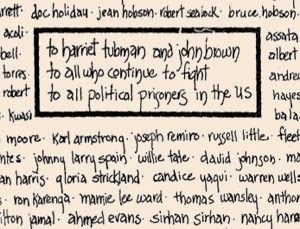 rrett · doc holiday · jean hobson · robert seabock · bruce hobson
acoli
bell
torres
robert
kwasi
to harriet tubman and john brown
to all who continue to fight
to all political prisoners in the US
assata
albert
andre
hayes
bala
moore · karl armstrong · joseph remiro · russell little · flee
ntes · johnny larry spain · willie tate · david johnson · ma
an harris · gloria strickland · candice yaqui · warren wells
s · ron karenga · mamie lee ward · thomas wansley · antho
ilton jamal · ahmed evans · sirhan sirhan · nancy hara